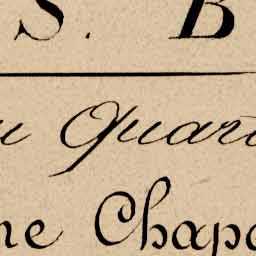 S. B
u Quar
ne Chap